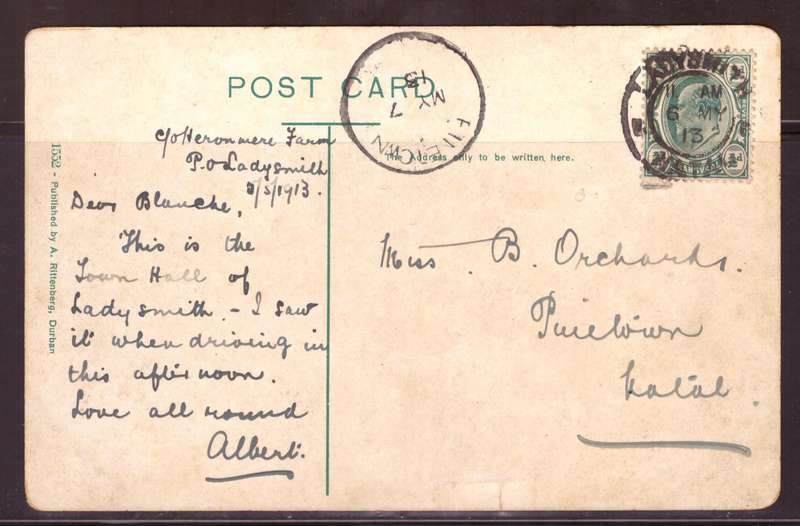 POST CARD
c/o Heronmere Farm
P.O Ladysmith
5/1913.
Dear Blanche,
This is the
Town Hall of
Ladysmith - I saw
it when driving in
this afternoon.
Love all round
Albert.
1552 - Published by A. Rittenberg, Durban
The Address only to be written here.
Miss B. Orchards.
Pinetown
Natal.
PINETOWN
7
MY
13
LADYSMITH
11 AM
6 MY
13